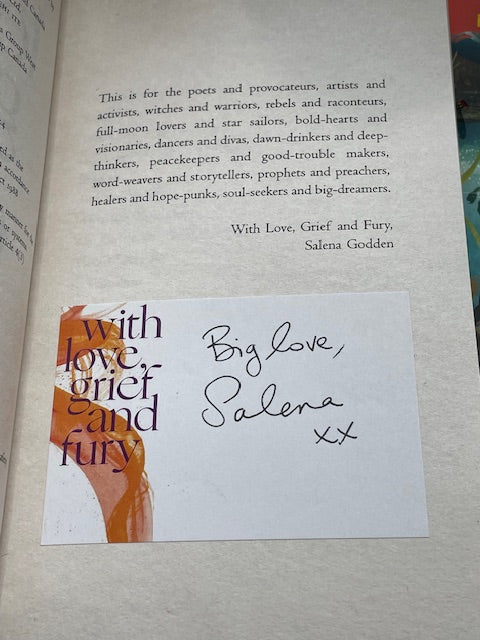 d Canada
Ltd,
1H7 7TF
s Group West
p Canada
ed as the
n accordance
ct 1988
y manner for the
s or systems
rticle 4(3)
This is for the poets and provocateurs, artists and
activists, witches and warriors, rebels and raconteurs,
full-moon lovers and star sailors, bold-hearts and
visionaries, dancers and divas, dawn-drinkers and deep-
thinkers, peacekeepers and good-trouble makers,
word-weavers and storytellers, prophets and preachers,
healers and hope-punks, soul-seekers and big-dreamers.
With Love, Grief and Fury,
Salena Godden
with
love,
grief
and
fury
Big love,
Salena
xx